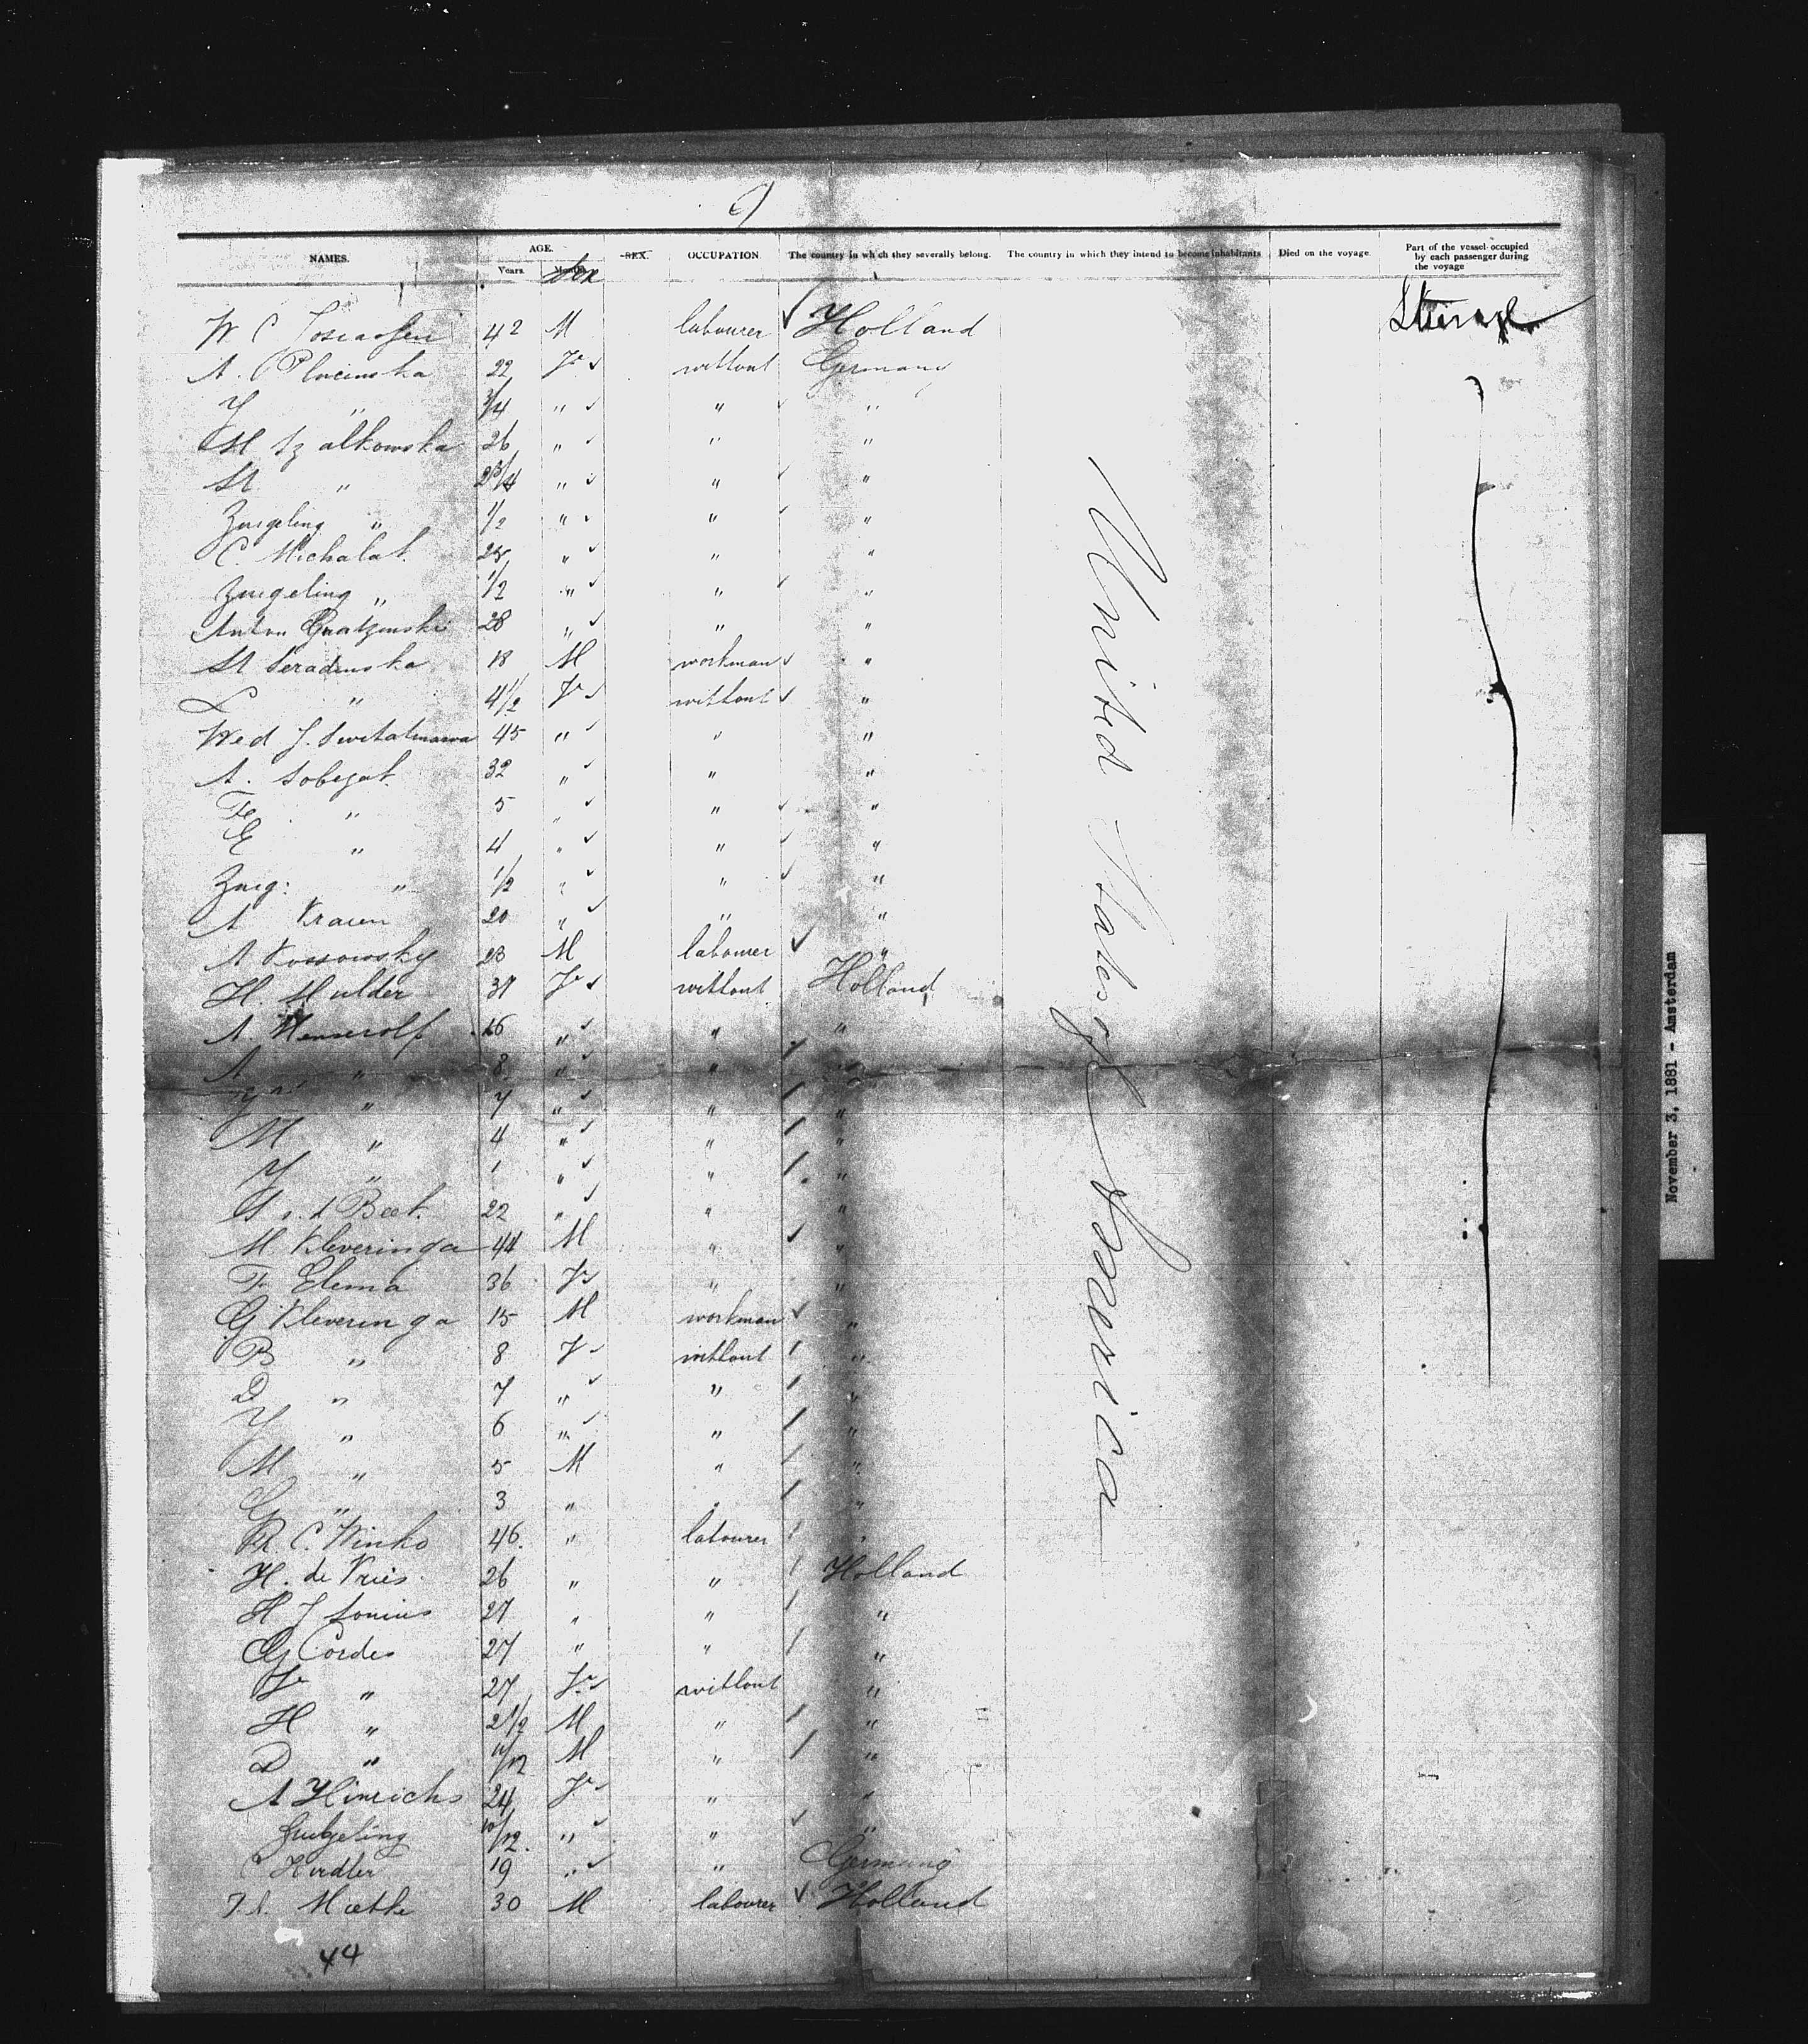 9
NAMES. AGE. Years. Months. Sex SEX. OCCUPATION. The country in which they severally belong. The country in which they intend to become inhabitants Died on the voyage. Part of the vessel occupied by each passenger during the voyage
W C 42 M labourer ✓ Holland
A. 22 Fe ✓ without Germany
Y " 3/4 " ✓ " ✓ "
M Szalkowska 26 " ✓ " "
St " 2 3/4 " ✓ " ✓ "
Zuigeling " 1/2 " ✓ " ✓ "
C. Michalat. " ✓ " "
Zuigeling " 1/2 " ✓ " ✓ "
Anton 28 " ✓ " "
St Seradinska 18 M workman ✓ "
L " 4 1/2 Fe ✓ without ✓ "
Wed J. 45 " ✓ " "
A. Sobezat. 32 " ✓ " "
Fe " 5 " ✓ " ✓ "
E " 4 " ✓ " ✓ "
Zuig: " 1/2 " ✓ " ✓ "
A 20 " ✓ " "
A Kossowsky 23 M labourer ✓ "
H. Mulder 37 Fe ✓ without Holland
A. " ✓ " "
A " 8 " ✓ " / "
" 7 " ✓ " / "
M " 4 " ✓ " / "
Y " 1 " ✓ " / "
Beek. 22 " ✓ " "
M Kleveringa 44 M " ✓ "
F Elema 36 Fe ✓ " "
G Kleveringa 15 M workman ✓ "
B " 8 F ✓ without / "
D " 7 " ✓ " / "
Y " 6 " ✓ " / "
M " 5 M " / "
G " 3 " " / "
R C. Winko 46. " labourer / "
H. de Vries. 26 " " / Holland
H J Sonius 27 " " / "
G Cordes 27 " " / "
Fe " 27 Fe ✓ without "
H " 2 1/2 M " / "
D " 11/12 M " / "
A Hinrichs 24 Fe ✓ " "
Zuigeling 10/12. " ✓ " ✓ "
C Hirdler 19 " ✓ " Germany
30 M labourer ✓ Holland
44
United States of America
Steerage
November 3, 1881 - Amsterdam